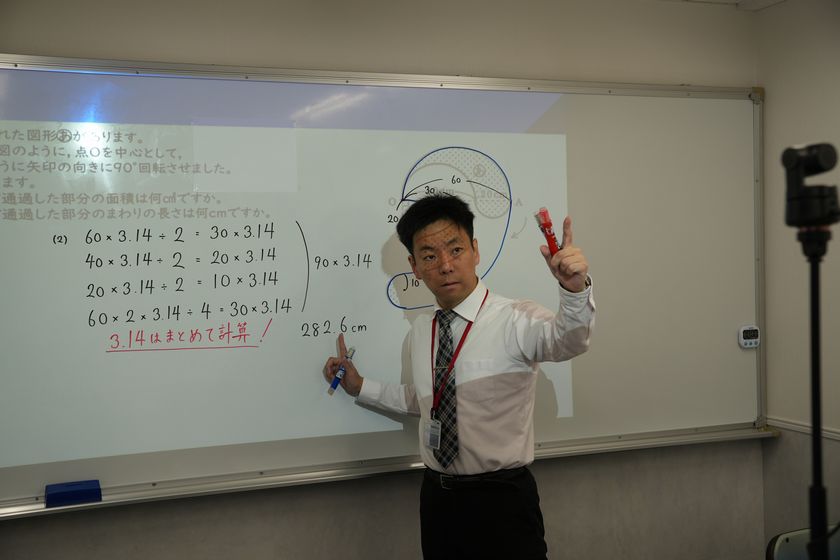 れた図形あがあります。
図のように,点Oを中心として,
うに矢印の向きに90°回転させました。
ます。
通過した部分の面積は何cm²ですか。
通過した部分のまわりの長さは何cmですか。
(2) 60×3.14÷2 = 30×3.14
40×3.14÷2 = 20×3.14
20×3.14÷2 = 10×3.14
60×2×3.14÷4=30×3.14
90×3.14
3.14はまとめて計算!
282.6cm
60
30
O
A
20
10